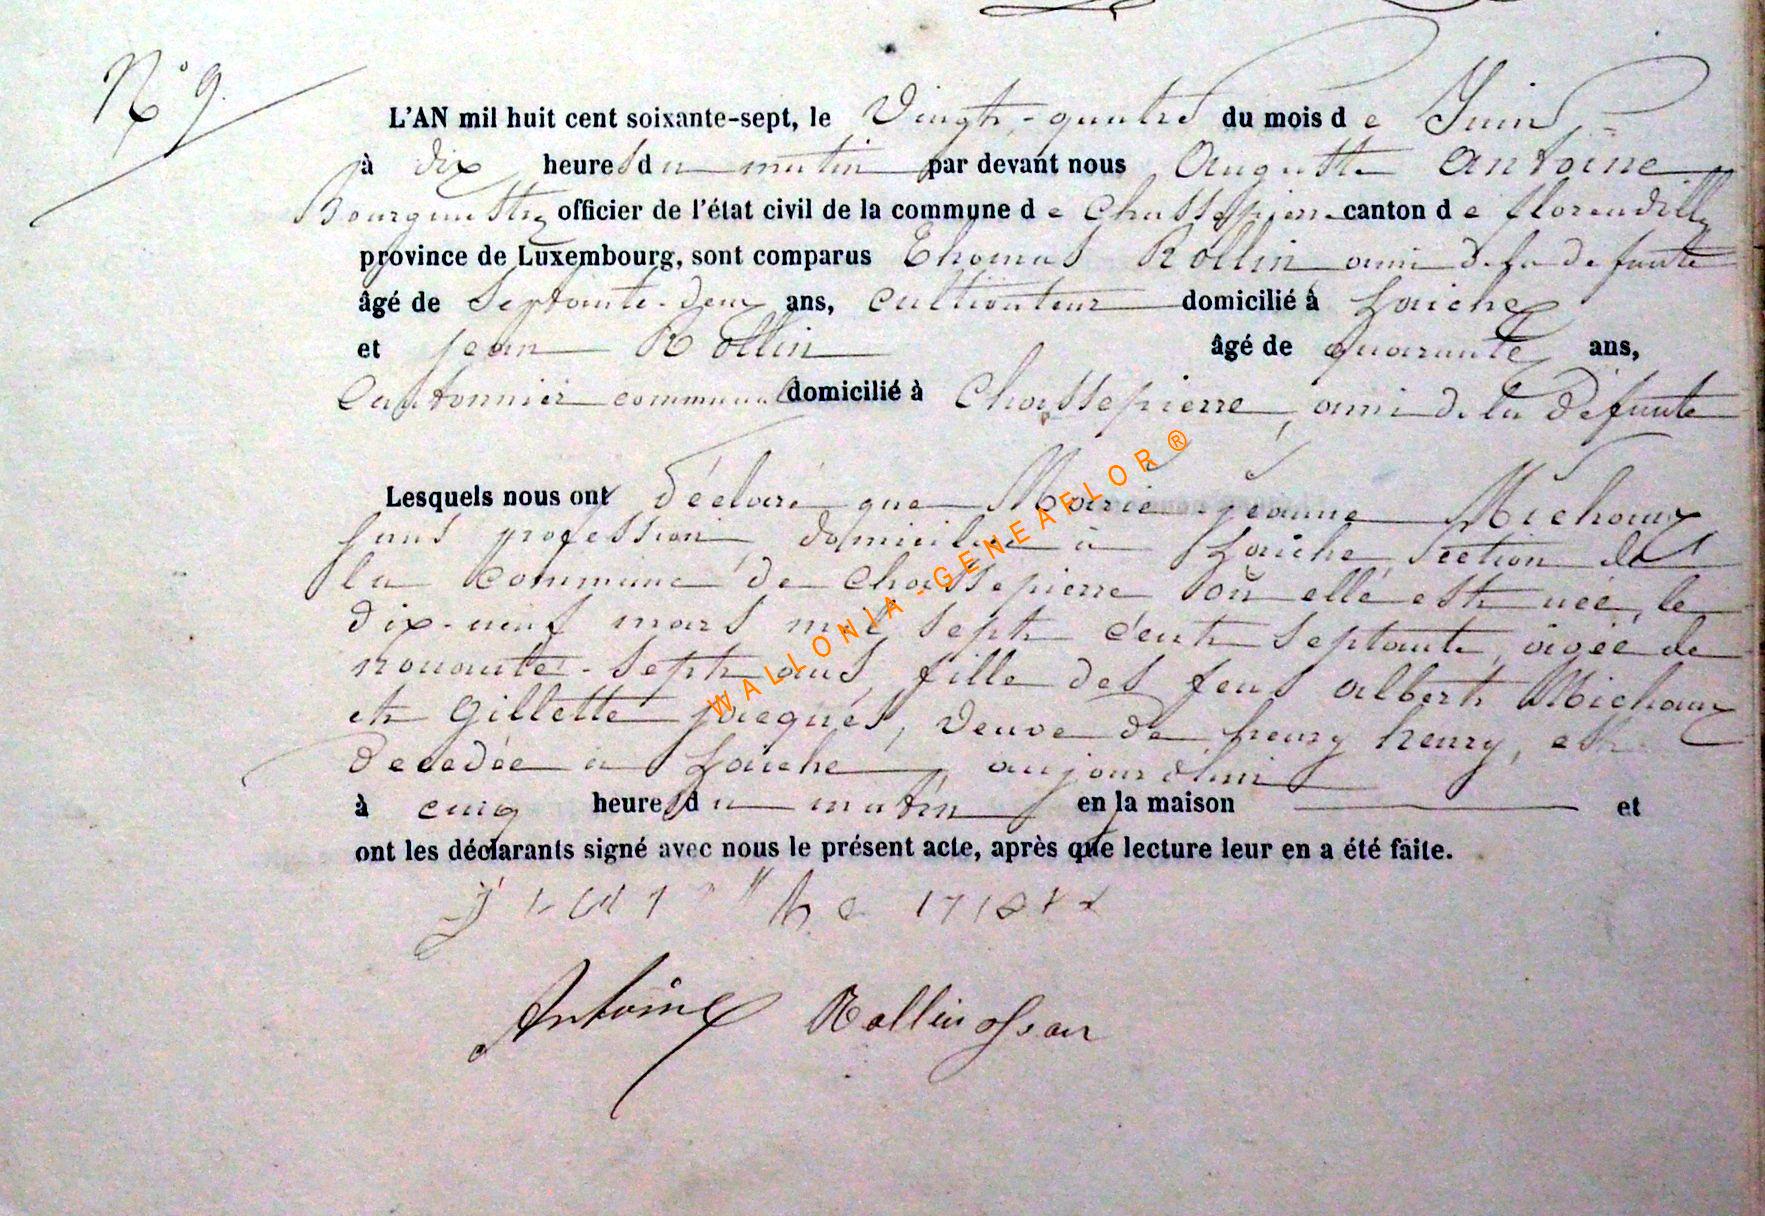 N° 9.
L'AN mil huit cent soixante-sept, le Vingt-quatre du mois de Juin
à dix heures du matin par devant nous Auguste Antoine
Bourgmestre officier de l'état civil de la commune de Chassepierre canton de florenville
province de Luxembourg, sont comparus Thomas Rollin ami de la defunte
âgé de Septante-deux ans, cultivateur domicilié à Laiche
et jean Rollin âgé de quarante ans,
Cantonnier communal domicilié à Chassepierre, ami de la défunte
Lesquels nous ont déclaré que Marie jeanne Michaux
sans profession, domiciliée à Laiche, section de
la commune de Chassepierre où elle est née, le
dix-neuf mars mil sept cent septante, âgée de
nonante-sept ans, fille des feus albert Michaux
et Gillette jacques, veuve de henry henry, est
decedée à Laiche, aujourdhui
à cinq heures du matin en la maison et
ont les déclarants signé avec nous le présent acte, après que lecture leur en a été faite.
Antoine Rollin Jean
WALLONIA-GENEAFLOR®